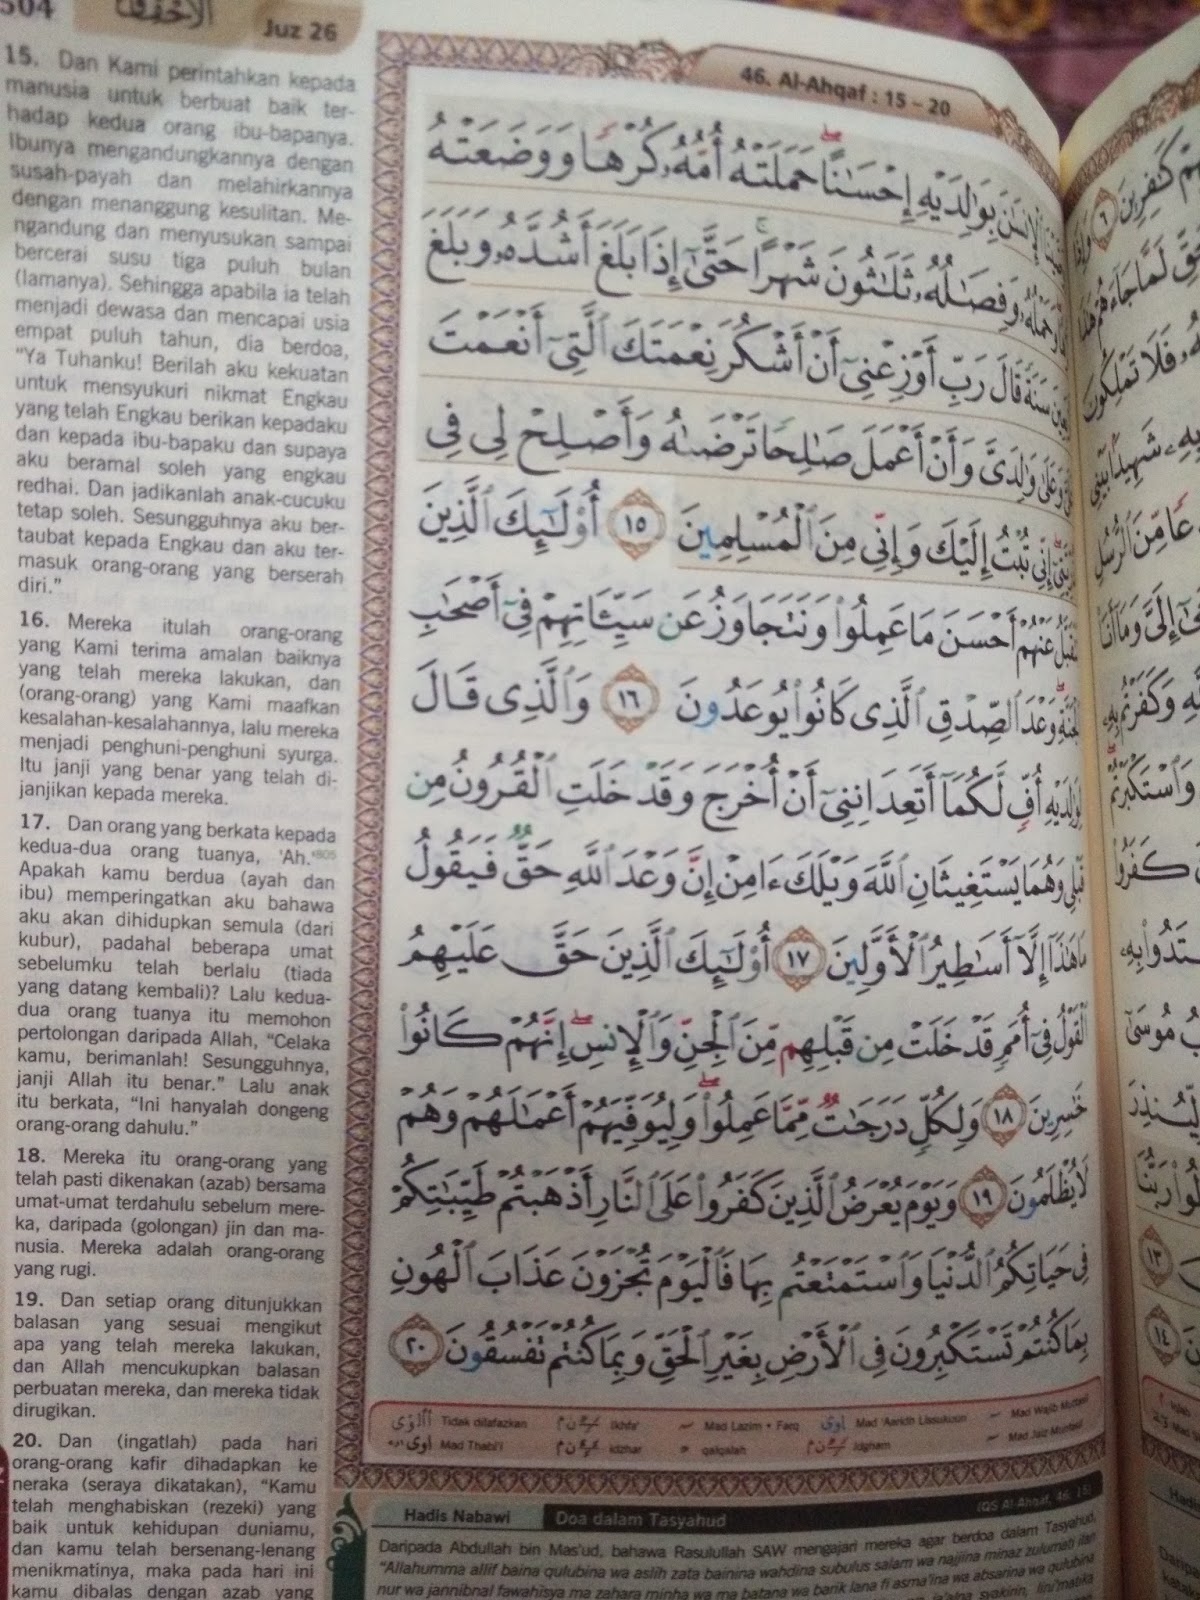 504
الأحقاف
Juz 26
15. Dan Kami perintahkan kepada
manusia untuk berbuat baik ter-
hadap kedua orang ibu-bapanya.
Ibunya mengandungkannya dengan
susah-payah dan melahirkannya
dengan menanggung kesulitan. Me-
ngandung dan menyusukan sampai
bercerai susu tiga puluh bulan
(lamanya). Sehingga apabila ia telah
menjadi dewasa dan mencapai usia
empat puluh tahun, dia berdoa,
"Ya Tuhanku! Berilah aku kekuatan
untuk mensyukuri nikmat Engkau
yang telah Engkau berikan kepadaku
dan kepada ibu-bapaku dan supaya
aku beramal soleh yang engkau
redhai. Dan jadikanlah anak-cucuku
tetap soleh. Sesungguhnya aku ber-
taubat kepada Engkau dan aku ter-
masuk orang-orang yang berserah
diri."
16. Mereka itulah orang-orang
yang Kami terima amalan baiknya
yang telah mereka lakukan, dan
(orang-orang) yang Kami maafkan
kesalahan-kesalahannya, lalu mereka
menjadi penghuni-penghuni syurga.
Itu janji yang benar yang telah di-
janjikan kepada mereka.
17. Dan orang yang berkata kepada
kedua-dua orang tuanya, 'Ah.'805
Apakah kamu berdua (ayah dan
ibu) memperingatkan aku bahawa
aku akan dihidupkan semula (dari
kubur), padahal beberapa umat
sebelumku telah berlalu (tiada
yang datang kembali)? Lalu kedua-
dua orang tuanya itu memohon
pertolongan daripada Allah, "Celaka
kamu, berimanlah! Sesungguhnya,
janji Allah itu benar." Lalu anak
itu berkata, "Ini hanyalah dongeng
orang-orang dahulu."
18. Mereka itu orang-orang yang
telah pasti dikenakan (azab) bersama
umat-umat terdahulu sebelum mere-
ka, daripada (golongan) jin dan ma-
nusia. Mereka adalah orang-orang
yang rugi.
19. Dan setiap orang ditunjukkan
balasan yang sesuai mengikut
apa yang telah mereka lakukan,
dan Allah mencukupkan balasan
perbuatan mereka, dan mereka tidak
dirugikan.
20. Dan (ingatlah) pada hari
orang-orang kafir dihadapkan ke
neraka (seraya dikatakan), "Kamu
telah menghabiskan (rezeki) yang
baik untuk kehidupan duniamu,
dan kamu telah bersenang-lenang
menikmatinya, maka pada hari ini
kamu dibalas dengan azab yang
46. Al-Ahqaf : 15 – 20
ٱلْإِنسَٰنَ بِوَٰلِدَيْهِ إِحْسَٰنًا ۖ حَمَلَتْهُ أُمُّهُۥ كُرْهًا وَوَضَعَتْهُ
وَحَمْلُهُۥ وَفِصَٰلُهُۥ ثَلَٰثُونَ شَهْرًا ۚ حَتَّىٰٓ إِذَا بَلَغَ أَشُدَّهُۥ وَبَلَغَ
سَنَةً قَالَ رَبِّ أَوْزِعْنِىٓ أَنْ أَشْكُرَ نِعْمَتَكَ ٱلَّتِىٓ أَنْعَمْتَ
وَعَلَىٰ وَٰلِدَىَّ وَأَنْ أَعْمَلَ صَٰلِحًا تَرْضَىٰهُ وَأَصْلِحْ لِى فِى
إِنِّى تُبْتُ إِلَيْكَ وَإِنِّى مِنَ ٱلْمُسْلِمِينَ ١٥ أُو۟لَٰٓئِكَ ٱلَّذِينَ
عَنْهُمْ أَحْسَنَ مَا عَمِلُوا۟ وَنَتَجَاوَزُ عَن سَيِّـَٔاتِهِمْ فِىٓ أَصْحَٰبِ
ٱلْجَنَّةِ ۖ وَعْدَ ٱلصِّدْقِ ٱلَّذِى كَانُوا۟ يُوعَدُونَ ١٦ وَٱلَّذِى قَالَ
لِوَٰلِدَيْهِ أُفٍّ لَّكُمَآ أَتَعِدَانِنِىٓ أَنْ أُخْرَجَ وَقَدْ خَلَتِ ٱلْقُرُونُ مِن
قَبْلِى وَهُمَا يَسْتَغِيثَانِ ٱللَّهَ وَيْلَكَ ءَامِنْ إِنَّ وَعْدَ ٱللَّهِ حَقٌّ فَيَقُولُ
مَا هَٰذَآ إِلَّآ أَسَٰطِيرُ ٱلْأَوَّلِينَ ١٧ أُو۟لَٰٓئِكَ ٱلَّذِينَ حَقَّ عَلَيْهِمُ
ٱلْقَوْلُ فِىٓ أُمَمٍ قَدْ خَلَتْ مِن قَبْلِهِم مِّنَ ٱلْجِنِّ وَٱلْإِنسِ ۖ إِنَّهُمْ كَانُوا۟
خَٰسِرِينَ ١٨ وَلِكُلٍّ دَرَجَٰتٌ مِّمَّا عَمِلُوا۟ ۖ وَلِيُوَفِّيَهُمْ أَعْمَٰلَهُمْ وَهُمْ
لَا يُظْلَمُونَ ١٩ وَيَوْمَ يُعْرَضُ ٱلَّذِينَ كَفَرُوا۟ عَلَى ٱلنَّارِ أَذْهَبْتُمْ طَيِّبَٰتِكُمْ
فِى حَيَاتِكُمُ ٱلدُّنْيَا وَٱسْتَمْتَعْتُم بِهَا فَٱلْيَوْمَ تُجْزَوْنَ عَذَابَ ٱلْهُونِ
بِمَا كُنتُمْ تَسْتَكْبِرُونَ فِى ٱلْأَرْضِ بِغَيْرِ ٱلْحَقِّ وَبِمَا كُنتُمْ تَفْسُقُونَ ٢٠
Tidak dilafazkan Ikhfa' Mad Lazim • Farq Mad 'Aaridh Lissukuun Mad Wajib Muttasil
Mad Thabi'i Idzhar qalqalah Idgham Mad Jaiz Munfasil
Hadis Nabawi Doa dalam Tasyahud (QS Al-Ahqaf, 46: 15)
Daripada Abdullah bin Mas'ud, bahawa Rasulullah SAW mengajari mereka agar berdoa dalam Tasyahud,
"Allahumma allif baina qulubina wa aslih zata bainina wahdina subulus salam wa najjina minaz zulumati ilan
nur wa jannibnal fawahisya ma zahara minha wa ma batana wa barik lana fi asma'ina wa absarina wa qulubina
كَٰفِرِينَ ٦
لَمَّا جَآءَهُمْ هَٰذَا
فَلَا تَمْلِكُونَ
بِهِۦ شَهِيدًۢا بَيْنِى
مِّنَ ٱلرُّسُلِ
إِلَىَّ وَمَآ أَنَا۠
وَكَفَرْتُم بِهِۦ
وَٱسْتَكْبَرْتُمْ
كَفَرُوا۟
مُوسَىٰٓ
لِّيُنذِرَ
رَبُّنَا
١٣
١٤